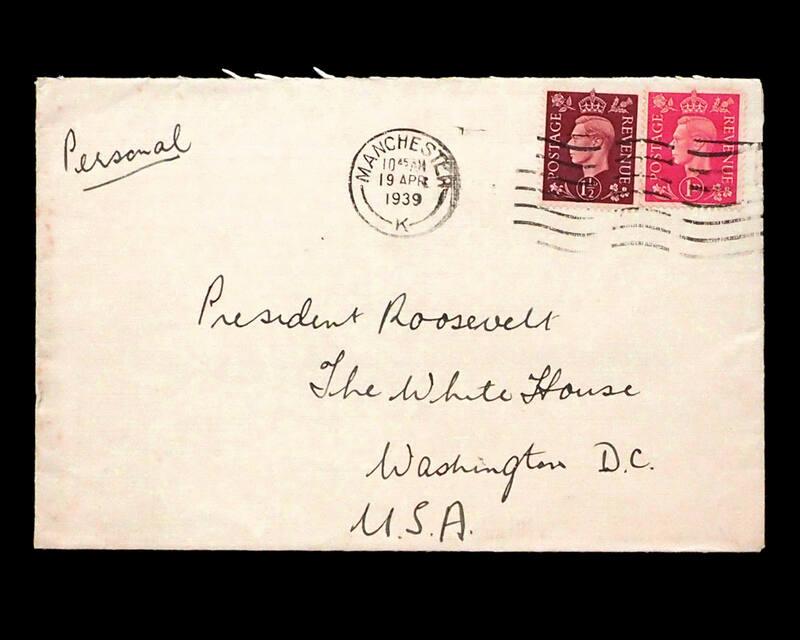 Personal
MANCHESTER
10 45 AM
19 APR
1939
K
POSTAGE REVENUE
1½
POSTAGE REVENUE
1D
President Roosevelt
The White House
Washington D.C.
U.S.A.